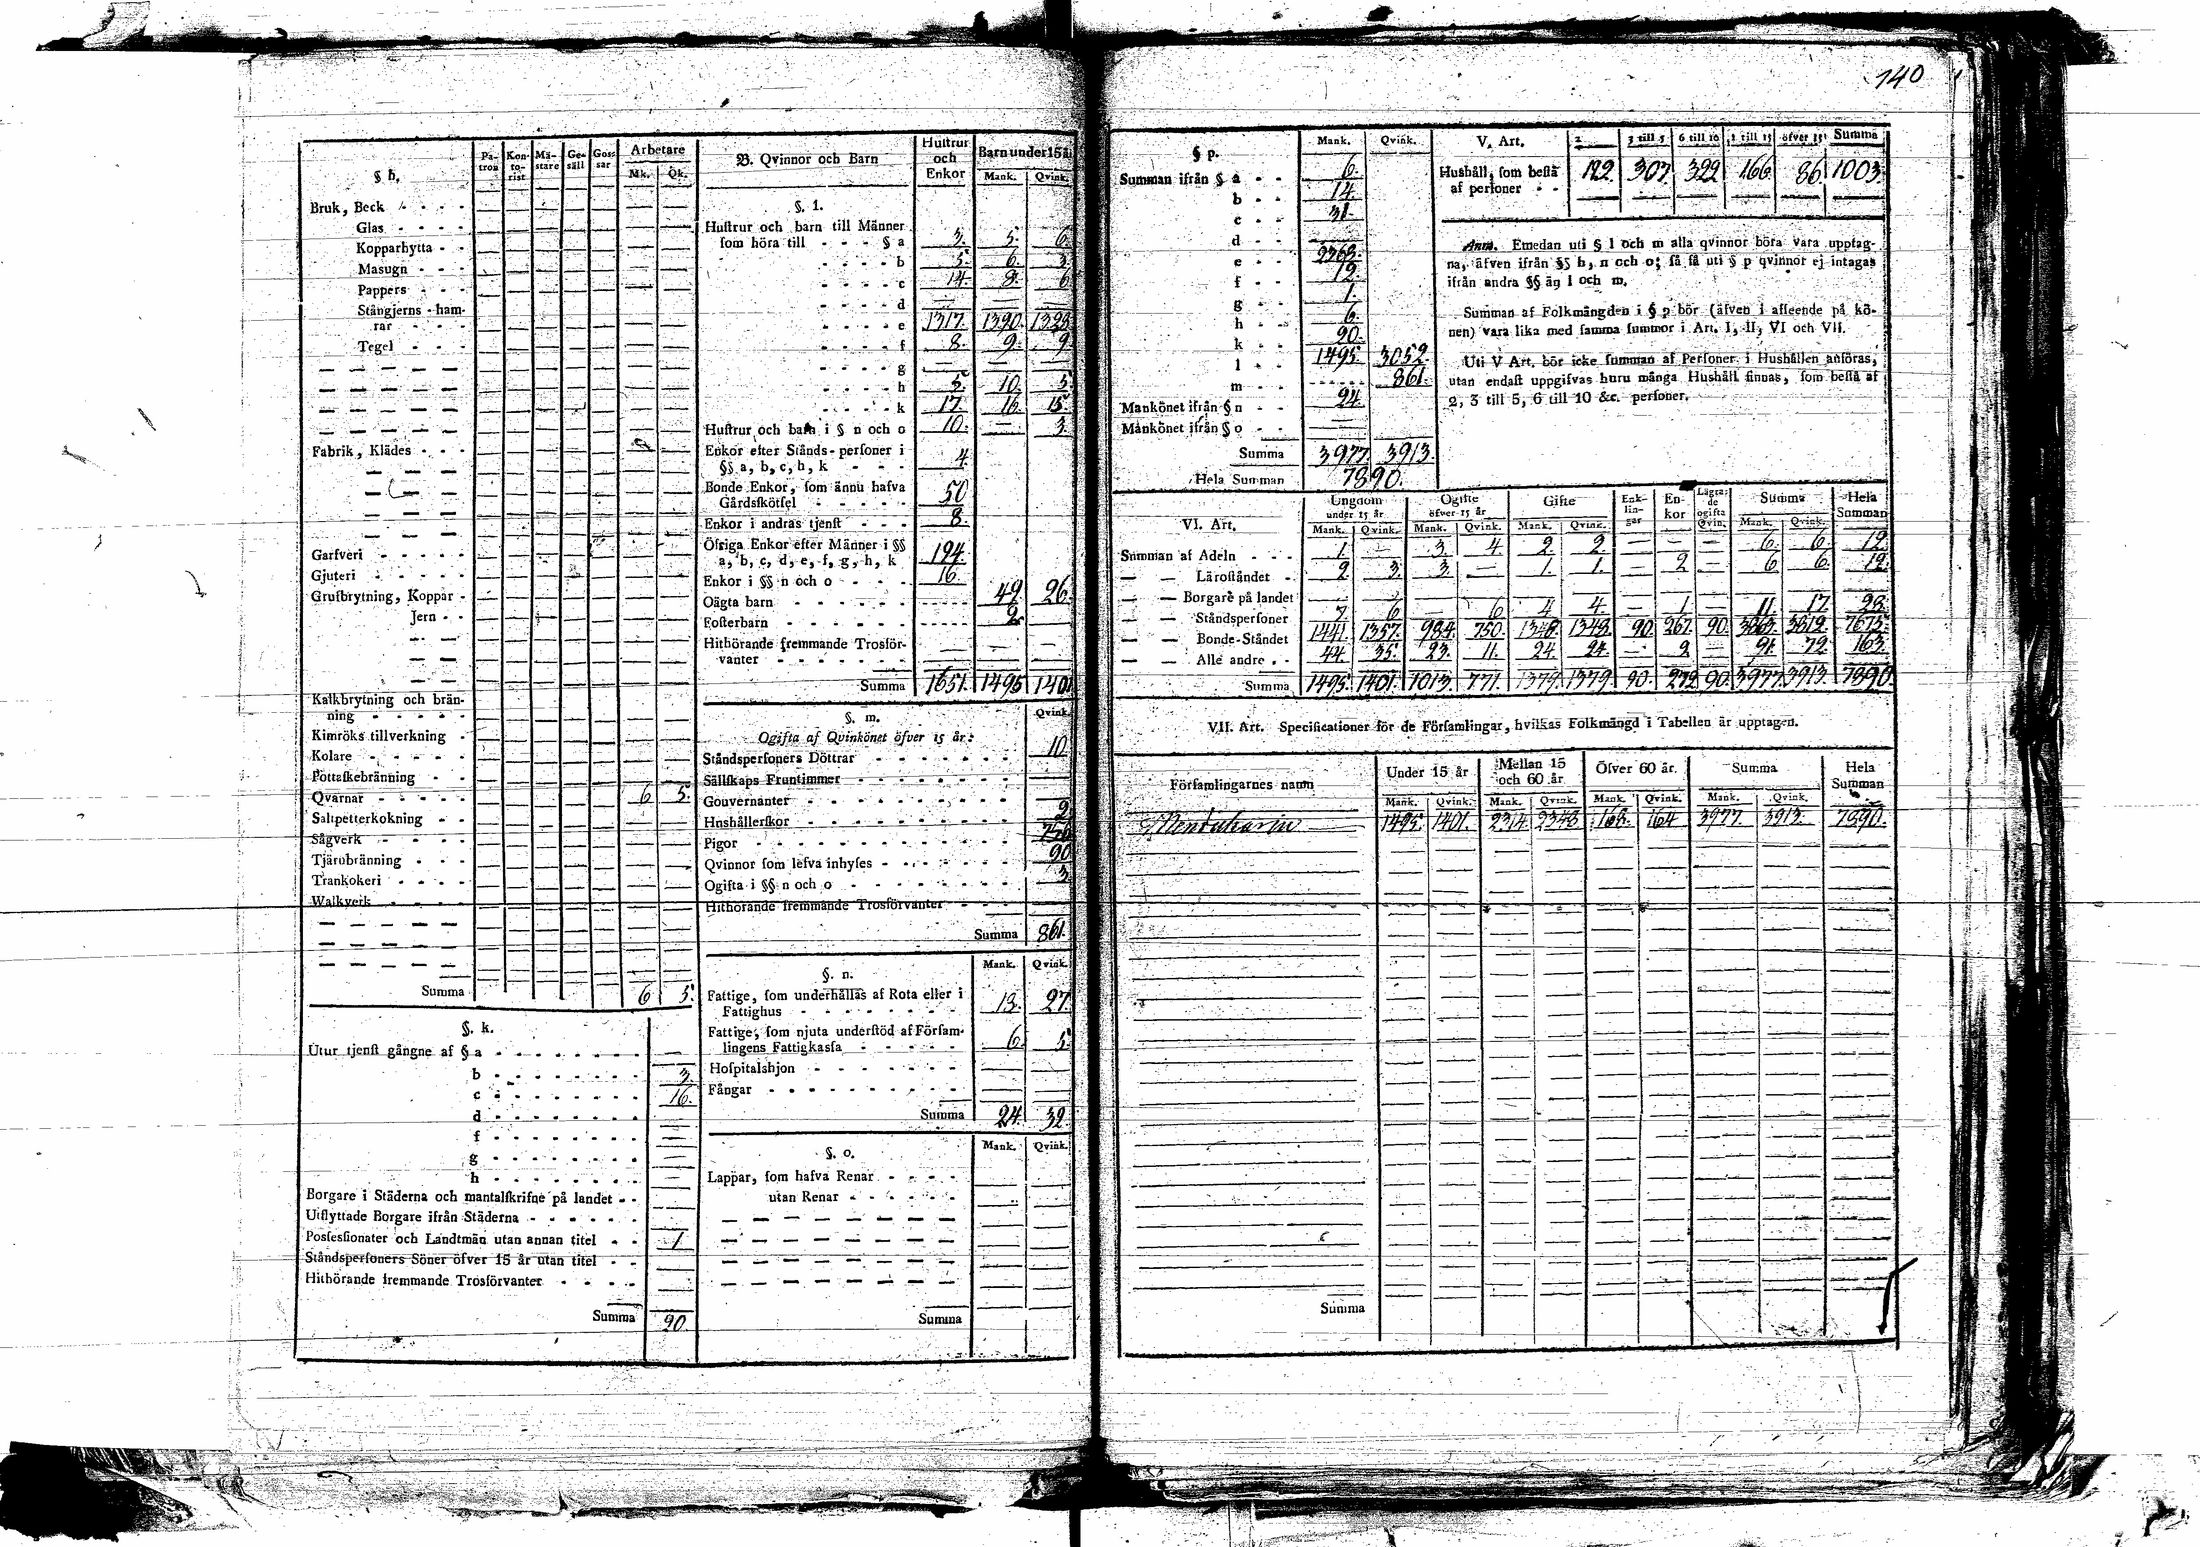 140
§ h.
Pa-tron Kon-to-rist Mä-stare Ge-säll Gos-sar Arbetare
Mk. Qk.
Bruk, Beck - - - -
Glas - - - -
Kopparhytta - -
Masugn - - -
Pappers - - -
Stångjerns-ham-
rar - - -
Tegel - - -
Fabrik, Klädes - - -
Garfveri - - - - -
Gjuteri - - - - -
Grufbrytning, Koppar -
Jern - -
Kalkbrytning och brän-
ning - - - - -
Kimröks tillverkning -
Kolare - - - - -
Pottaskebränning - -
Qvarnar - - - - - 6 5.
Saltpetterkokning - -
Sågverk - - - - -
Tjärubränning - - -
Trankokeri - - - -
Walkverk - - - -
Summa 6 5.
§. k.
Utur tjenst gångne af § a - - - - - - - -
b - - - - - - - - 3.
c - - - - - - - - 16.
d - - - - - - - -
f - - - - - - - -
g - - - - - - - -
h - - - - - - - -
Borgare i Städerna och mantalskrifne på landet - -
Utflyttade Borgare ifrån Städerna - - - - - -
Possessionater och Landtmän utan annan titel - - 1
Ståndspersoners Söner öfver 15 år utan titel - -
Hithörande fremmande Trosförvanter - - - -
Summa 20
B. Qvinnor och Barn Hustrur och Enkor Barn under 15 å
Mank. Qvink.
§. l.
Hustrur och barn till Männer
som höra till - - - § a 3. 5. 6.
- - - - b 5. 6. 3.
- - - - c 14. 8. 6
- - - - d
- - - - e 1317. 1390. 1328
- - - - f 8. 9. 9
- - - - g
- - - - h 5. 10. 5
- - - - k 17. 16. 15.
Hustrur och barn i § n och o 10. — 3.
Enkor efter Stånds-personer i
§§ a, b, c, h, k - - - 4.
Bonde Enkor, som ännu hafva
Gårdsskötsel - - - - - 50
Enkor i andras tjenst - - - 8.
Öfriga Enkor efter Männer i §§
a, b, c, d, e, f, g, h, k 194.
Enkor i §§ n och o - - - - 16.
Oägta barn - - - - - - 49 26.
Fosterbarn - - - - - - 2.
Hithörande fremmande Trosför-
vanter - - - - - -
Summa 1651. 1495 1401
§. m. Qvink.
Ogifta af Qvinkönet öfver 15 år:
Ståndspersoners Döttrar - - - - - - - 10
Sällskaps Fruntimmer - - - - - - - -
Gouvernanter - - - - - - - - - -
Hushållerskor - - - - - - - - - - 2.
Pigor - - - - - - - - - - - 756
Qvinnor som lefva inhyses - - - - - - 90
Ogifta i §§ n och o - - - - - - - - 3
Hithörande fremmande Trosförvanter - - -
Summa 861.
§. n. Mank. Qvink.
Fattige, som underhållas af Rota eller i
Fattighus - - - - - - - - 18. 27.
Fattige, som njuta understöd af Försam-
lingens Fattigkassa - - - - - 6. 5.
Hospitalshjon - - - - - - -
Fångar - - - - - - - - -
Summa 24. 32.
§. o. Mank. Qvink.
Lappar, som hafva Renar - - - -
utan Renar - - - - -
Summa
§ p. Mank. Qvink.
Summan ifrån § a - - 6.
b - - 14.
c - - 31.
d - -
e - - 2368.
f - - 12.
g - - 1.
h - - 6.
k - - 20.
l - - 1495. 3052.
m - - 861.
Mankönet ifrån § n - - 24.
Mankönet ifrån § o - -
Summa 3977. 3913.
Hela Summan 7890.
V. Art. 2 3 till 5 6 till 10 1 till 15 öfver 15 Summa
Hushåll, som bestå
af personer - - 122. 307. 322 166. 86. 1003.
Anm. Emedan uti § l och m alla qvinnor böra vara upptag-
na, äfven ifrån §§ h, n och o; så få uti § p qvinnor ej intagas
ifrån andra §§ än l och m.
Summan af Folkmängden i § p bör (äfven i afseende på kö-
nen) vara lika med samma summor i Art. I, II, VI och VII.
Uti V Art. bör icke summan af Personer i Hushållen anföras,
utan endast uppgifvas huru många Hushåll finnas, som bestå af
2, 3 till 5, 6 till 10 &c. personer.
VI. Art. Ungdom under 15 år Ogifte öfver 15 år Gifte Enk-lin-gar En-kor Lägra-de ogifta Qvin. Summa Hela Summan
Mank. Qvink. Mank. Qvink. Mank. Qvink. Mank. Qvink.
Summan af Adeln - - - 1. — 3. 4 2. 2. — — — 6. 6. 12.
— — Läroståndet - 2 3. 3. — 1. 1. — 2 — 6 6. 12.
— — Borgare på landet
— — Ståndspersoner 7 6 — 6 4 4. — 1. — 11. 17. 28.
— — Bonde-Ståndet 1441. 1357. 984. 750. 1348. 1348. 90. 267. 90. 3863. 3812. 7675.
— — Alle andre - - 44. 35. 23. 11. 24. 24. — 2 — 91. 72. 163.
Summa 1495. 1401. 1013. 771. 1379. 1379. 90. 272. 90. 3977. 3913. 7890.
VII. Art. Specificationer för de Församlingar, hvilkas Folkmängd i Tabellen är upptagen.
Församlingarnes namn Under 15 år Mellan 15 och 60 år Öfver 60 år. Summa Hela Summan
Mank. Qvink. Mank. Qvink. Mank. Qvink. Mank. Qvink.
1495. 1401. 2314. 2348 168. 164 3977. 3913. 7890.
Summa